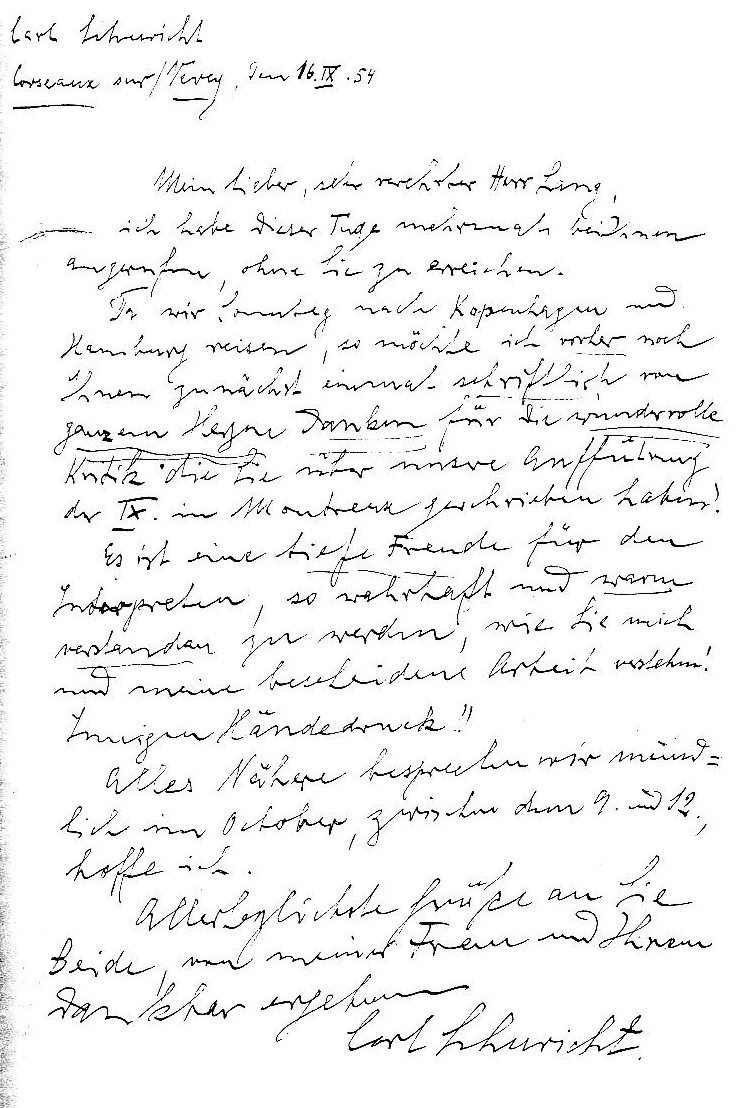 Carl Schuricht
Corseaux sur/Vevey, den 16.IX.54
Mein lieber, sehr verehrter Herr
ich habe dieser Tage mehrmals bei Ihnen
angerufen, ohne Sie zu erreichen.
Da wir Sonntag nach Kopenhagen und
Hamburg reisen, so möchte ich vorher noch
Ihnen zunächst einmal schriftlich von
ganzem Herzen danken für die wundervolle
Kritik die Sie über unsere Aufführung
der IX. in Montreux geschrieben haben!
Es ist eine tiefe Freude für den
Interpreten, so wahrhaft und warm
verstanden zu werden, wie Sie mich
und meine bescheidene Arbeit verstehen!
Innigen Händedruck!!
Alles Nähere besprechen wir münd=
lich im October, zwischen dem 9. und 12.,
hoffe ich.
Allerherzlichste Grüße an Sie
Beide, von meiner Frau und Ihrem
dankbar ergebenen
Carl Schuricht.